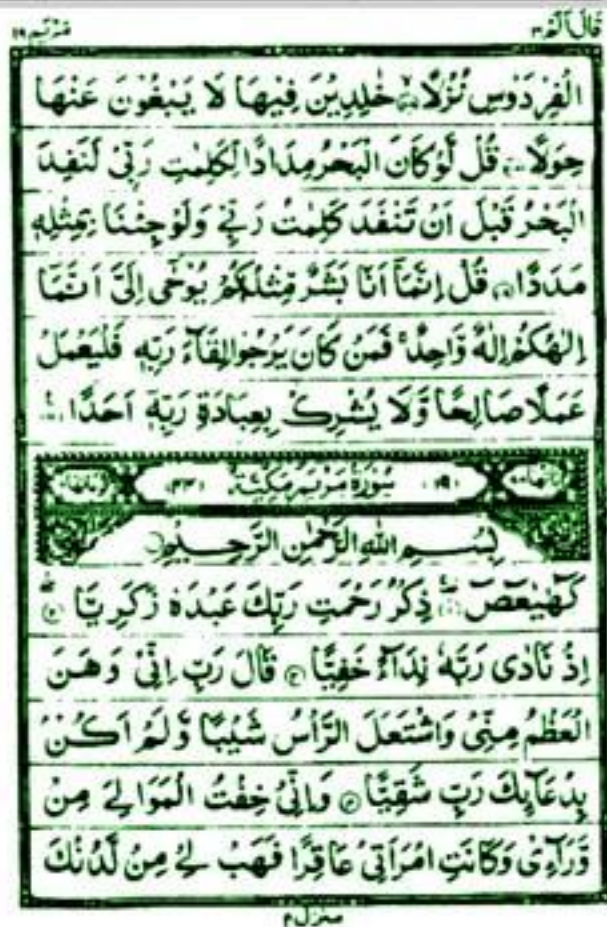 قَالَ اَلَمْ ١٦
مَرْيَم ١٩
الْفِرْدَوْسِ نُزُلًا ۙ خٰلِدِيْنَ فِيْهَا لَا يَبْغُوْنَ عَنْهَا
حِوَلًا ۞ قُلْ لَّوْ كَانَ الْبَحْرُ مِدَادًا لِّكَلِمٰتِ رَبِّيْ لَنَفِدَ
الْبَحْرُ قَبْلَ اَنْ تَنْفَدَ كَلِمٰتُ رَبِّيْ وَلَوْ جِئْنَا بِمِثْلِهٖ
مَدَدًا ۞ قُلْ اِنَّمَاۤ اَنَا بَشَرٌ مِّثْلُكُمْ يُوْحٰۤى اِلَيَّ اَنَّمَاۤ
اِلٰهُكُمْ اِلٰهٌ وَّاحِدٌ ۚ فَمَنْ كَانَ يَرْجُوْا لِقَآءَ رَبِّهٖ فَلْيَعْمَلْ
عَمَلًا صَالِحًا وَّلَا يُشْرِكْ بِعِبَادَةِ رَبِّهٖۤ اَحَدًا ۞
(١٩) سُوْرَةُ مَرْيَمَ مَكِّيَّةٌ (٤٤)
بِسْمِ اللهِ الرَّحْمٰنِ الرَّحِيْمِ
كٓهٰيٰعٓصٓ ۞ ذِكْرُ رَحْمَتِ رَبِّكَ عَبْدَهٗ زَكَرِيَّا ۞
اِذْ نَادٰى رَبَّهٗ نِدَآءً خَفِيًّا ۞ قَالَ رَبِّ اِنِّيْ وَهَنَ
الْعَظْمُ مِنِّيْ وَاشْتَعَلَ الرَّاْسُ شَيْبًا وَّلَمْ اَكُنْۢ
بِدُعَآئِكَ رَبِّ شَقِيًّا ۞ وَاِنِّيْ خِفْتُ الْمَوَالِيَ مِنْ
وَّرَآءِيْ وَكَانَتِ امْرَاَتِيْ عَاقِرًا فَهَبْ لِيْ مِنْ لَّدُنْكَ
منزل ٤